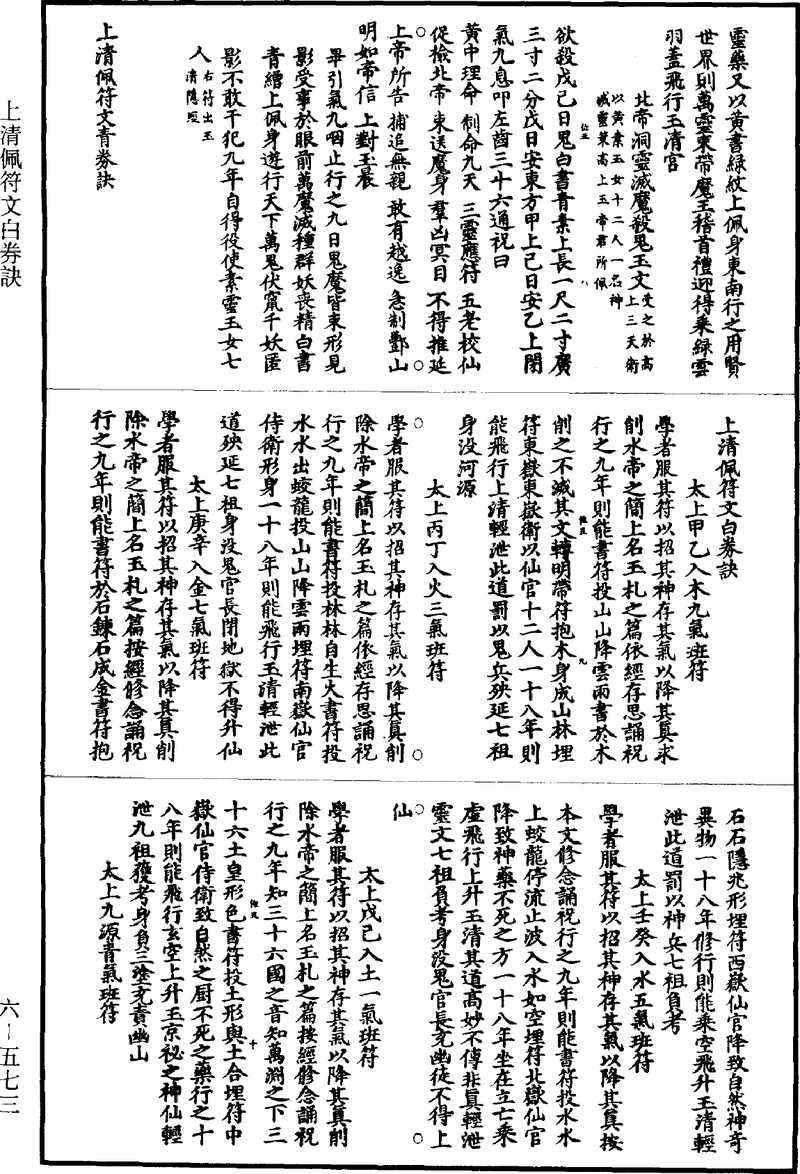 靈藥又以黃書綠紋上佩身東南行之用賢
世界則萬靈束帶魔王稽首禮迎得乘綠雲
羽蓋飛行玉清宮
北帝洞靈滅魔殺鬼玉文受之於高上三天衛
以黃素玉女十二人一名神
滅靈策高上玉帝君所佩
欲殺戊己日鬼白書青素上長一尺二寸廣
三寸二分戊日安東方甲上己日安乙上閉
氣九息叩左齒三十六通祝曰
黃中理命 制命九天 三靈應符 五老校仙
促檢北帝 束送魔身 羣凶冥目 不得推延
上帝所告 捕追無親 敢有越逸 急制酆山
明如帝信 上對玉晨
畢引氣九咽止行之九日鬼魔皆束形見
影受事於眼前萬魔滅種群妖喪精白書
青繒上佩身遊行天下萬鬼伏竄千妖匿
影不敢干犯九年自得役使素靈玉女七
人右符出玉清隱照
上清佩符文青券訣
上清佩符文白券訣
太上甲乙入木九氣班符
學者服其符以招其神存其氣以降其真求
削水帝之簡上名玉札之篇依經存思誦祝
行之九年則能書符投山山降雲雨書於木
削之不滅其文轉明帶符抱木身成山林埋
符東嶽東嶽衛以仙官十二人一十八年則
能飛行上清輕泄此道罰以鬼兵殃延七祖
身没河源
太上丙丁入火三氣班符
學者服其符以招其神存其氣以降其真削
除水帝之簡上名玉札之篇依經存思誦祝
行之九年則能書符投林林自生火書符投
水水出蛟龍投山山降雲雨埋符南嶽仙官
侍衛形身一十八年則能飛行玉清輕泄此
道殃延七祖身没鬼官長閉地獄不得升仙
太上庚辛入金七氣班符
學者服其符以招其神存其氣以降其真削
除水帝之簡上名玉札之篇按經修念誦祝
行之九年則能書符於石鍊石成金書符抱
石石隱兆形埋符西嶽仙官降致自然神奇
異物一十八年修行則能乘空飛升玉清輕
泄此道罰以神兵七祖負考
太上壬癸入水五氣班符
學者服其符以招其神存其氣以降其真按
本文修念誦祝行之九年則能書符投水水
上蛟龍停流止波入水如空埋符北嶽仙官
降致神藥不死之方一十八年坐在立亡乘
虛飛行上升玉清其道高妙不傳非真輕泄
靈文七祖負考身没鬼官長充幽徒不得上
仙
太上戊己入土一氣班符
學者服其符以招其神存其氣以降其真削
除水帝之簡上名玉札之篇按經修念誦祝
行之九年知三十六國之音知萬淵之下三
十六土皇形色書符投土形與土合埋符中
嶽仙官侍衛致自然之厨不死之藥行之十
八年則能飛行玄空上升玉京祕之神仙輕
泄九祖獲考身負三塗充責幽山
太上九源青氣班符
上清佩符文白券訣
六－五七三